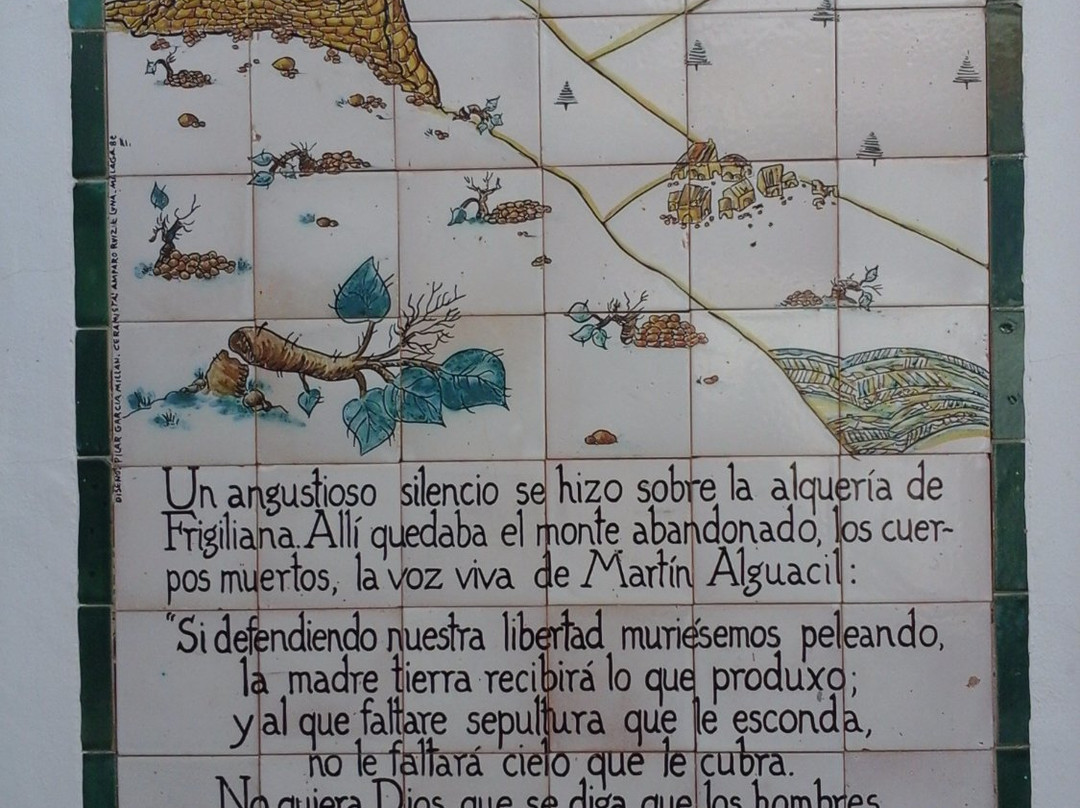 DISEÑO, PILAR GARCIA MILLAN. CERAMISTA AMPARO RUIZ DE LUNA. MALAGA
Un angustioso silencio se hizo sobre la alquería de
Frigiliana. Allí quedaba el monte abandonado, los cuer-
pos muertos, la voz viva de Martín Alguacil:
"Si defendiendo nuestra libertad muriésemos peleando,
la madre tierra recibirá lo que produxo;
y al que faltare sepultura que le esconda,
no le faltará cielo que le cubra.
No quiera Dios que se diga que los hombres